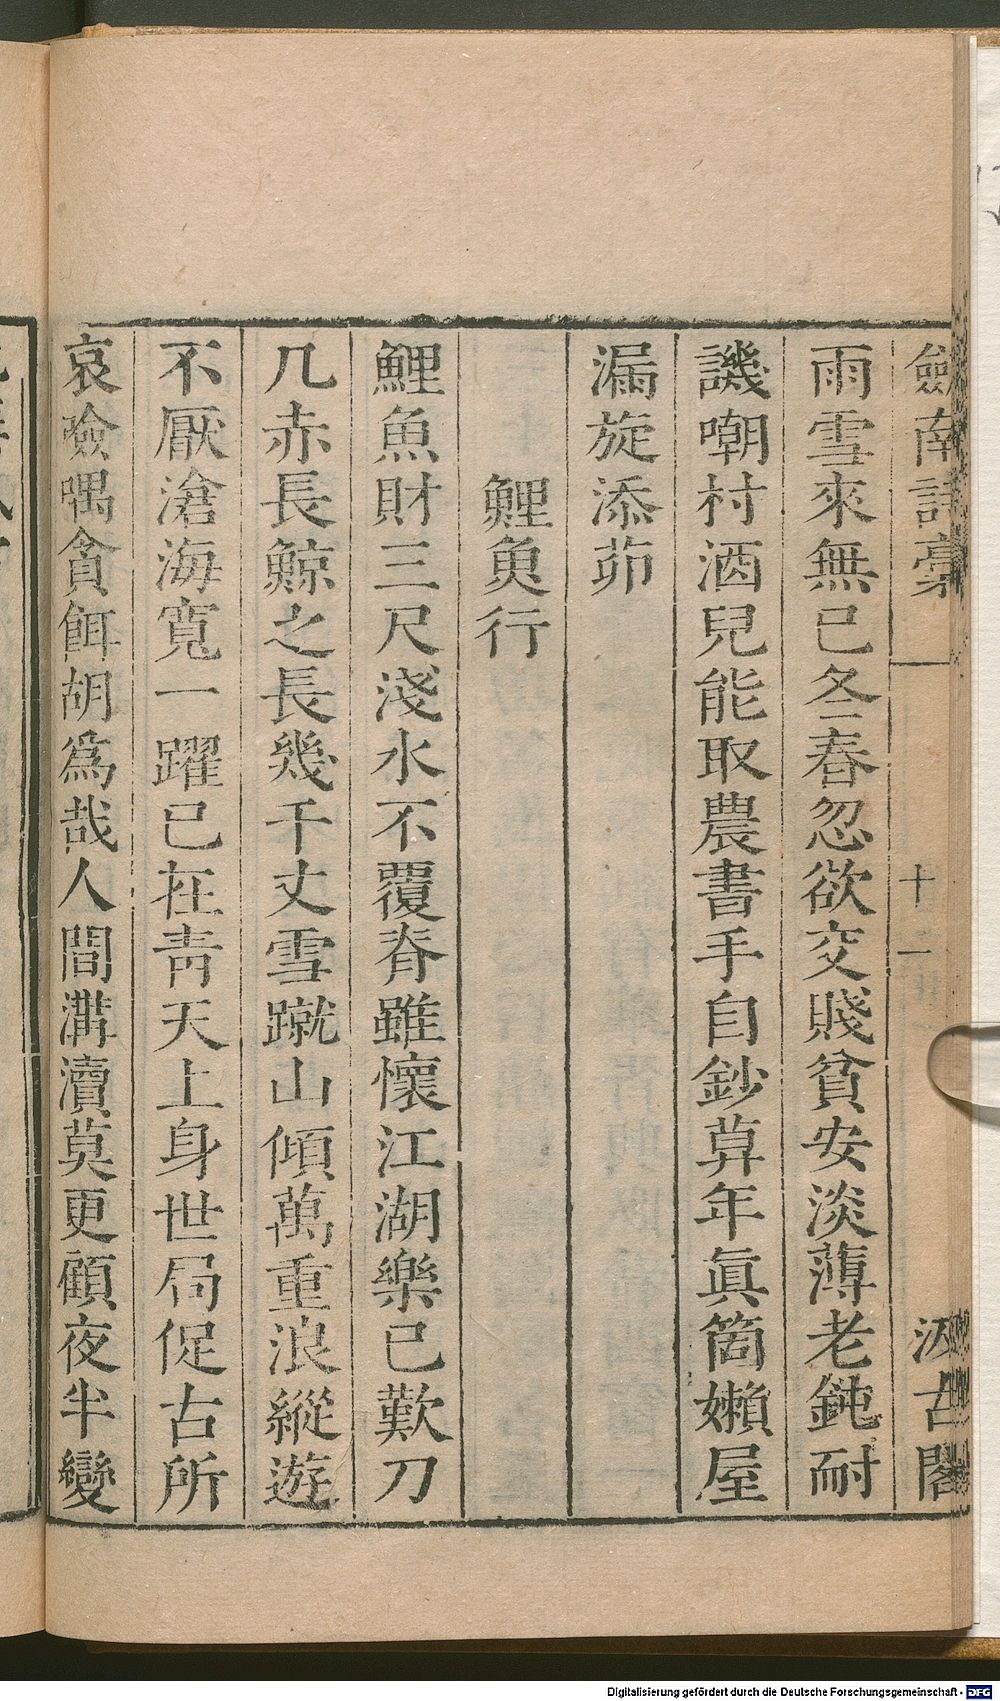 劍南詩稾 十一 汲古閣
雨雪來無已冬春忽欲交賤貧安淡薄老鈍耐
譏嘲村酒兒能取農書手自鈔算年眞箇嬾屋
漏旋添茆
鯉魚行
鯉魚財三尺淺水不覆脊雖懷江湖樂已歎刀
几赤長鯨之長幾千丈雪蹴山傾萬重浪縱遊
不厭滄海寬一躍已在靑天上身世局促古所
哀噞喁貪餌胡爲哉人間溝瀆莫更顧夜半變
Digitalisierung gefördert durch die Deutsche Forschungsgemeinschaft - DFG